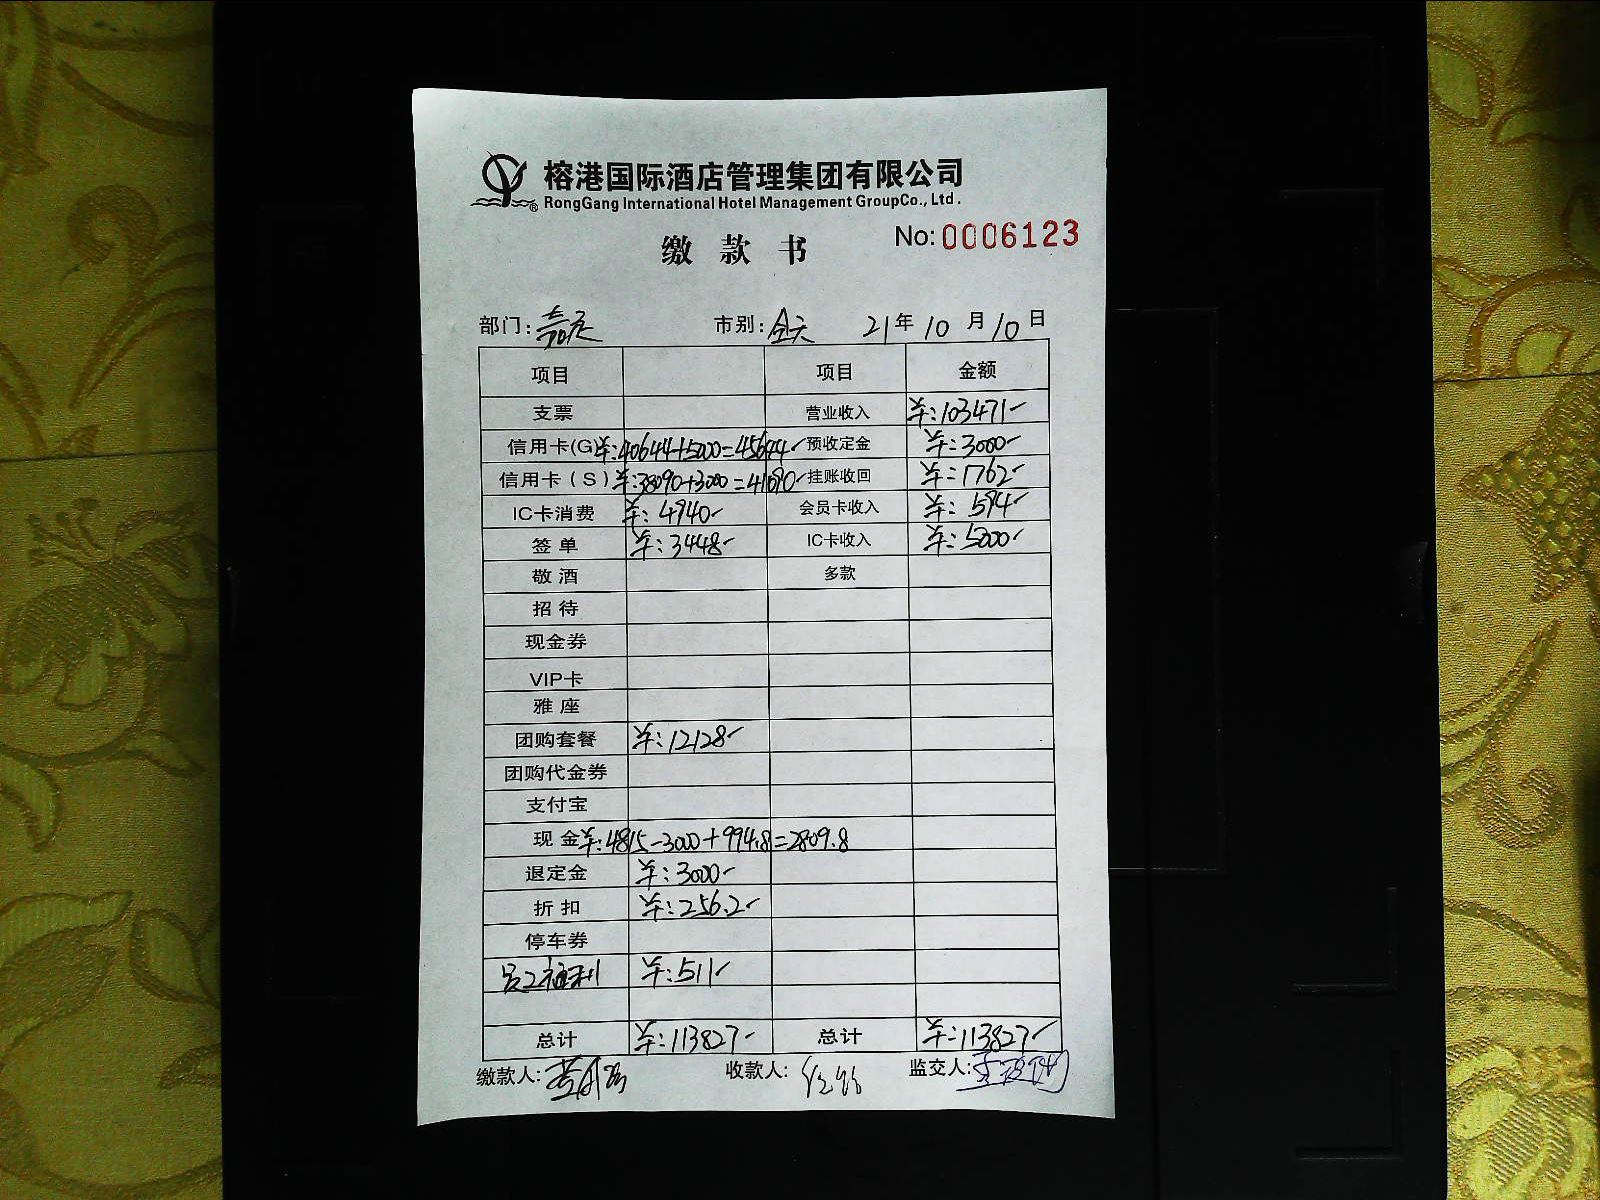 榕港国际酒店管理集团有限公司
RongGang International Hotel Management GroupCo., Ltd.
缴款书 No: 0006123
部门: 嘉定 市别: 全天 21年10月10日
项目 项目 金额
支票 营业收入 ¥:103471-
信用卡(G) ¥:40644+5000=45644- 预收定金 ¥:3000-
信用卡(S) ¥:38090+3000=41090- 挂账收回 ¥:1762-
IC卡消费 ¥:4940- 会员卡收入 ¥:594-
签单 ¥:3448- IC卡收入 ¥:5000-
敬酒 多款
招待
现金券
VIP卡
雅座
团购套餐 ¥:12128-
团购代金券
支付宝
现金 ¥:4815-3000+994.8=2809.8
退定金 ¥:3000-
折扣 ¥:256.2-
停车券
员工福利 ¥:511-
总计 ¥:113827- 总计 ¥:113827-
缴款人: 收款人: 监交人: